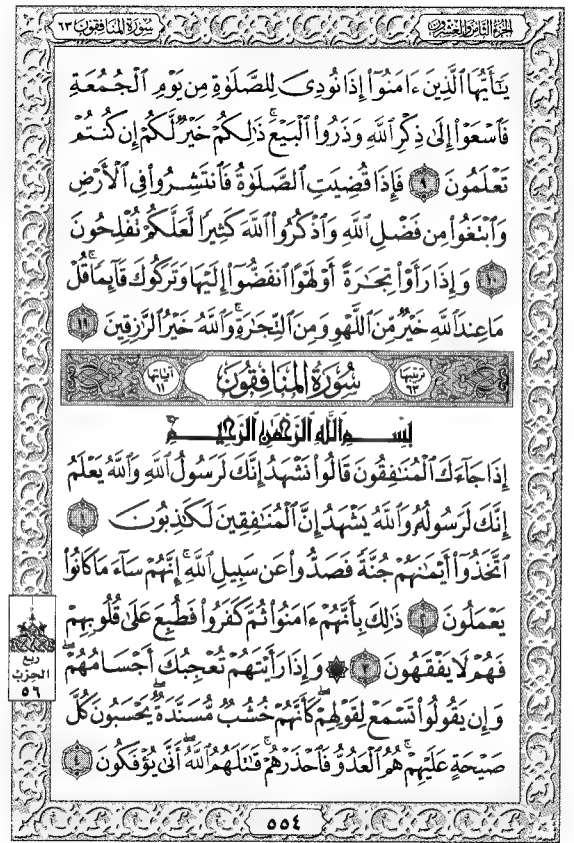 الجزء الثامن والعشرون
سورة المنافقون ٦٣
يَٰٓأَيُّهَا ٱلَّذِينَ ءَامَنُوٓا۟ إِذَا نُودِىَ لِلصَّلَوٰةِ مِن يَوْمِ ٱلْجُمُعَةِ
فَٱسْعَوْا۟ إِلَىٰ ذِكْرِ ٱللَّهِ وَذَرُوا۟ ٱلْبَيْعَ ۚ ذَٰلِكُمْ خَيْرٌ لَّكُمْ إِن كُنتُمْ
تَعْلَمُونَ ٩ فَإِذَا قُضِيَتِ ٱلصَّلَوٰةُ فَٱنتَشِرُوا۟ فِى ٱلْأَرْضِ
وَٱبْتَغُوا۟ مِن فَضْلِ ٱللَّهِ وَٱذْكُرُوا۟ ٱللَّهَ كَثِيرًا لَّعَلَّكُمْ تُفْلِحُونَ
١٠ وَإِذَا رَأَوْا۟ تِجَٰرَةً أَوْ لَهْوًا ٱنفَضُّوٓا۟ إِلَيْهَا وَتَرَكُوكَ قَآئِمًا ۚ قُلْ
مَا عِندَ ٱللَّهِ خَيْرٌ مِّنَ ٱللَّهْوِ وَمِنَ ٱلتِّجَٰرَةِ ۚ وَٱللَّهُ خَيْرُ ٱلرَّٰزِقِينَ ١١
ترتيبها ٦٣ سُورَةُ الْمُنَافِقُونَ آياتها ١١
بِسْمِ ٱللَّهِ ٱلرَّحْمَٰنِ ٱلرَّحِيمِ
إِذَا جَآءَكَ ٱلْمُنَٰفِقُونَ قَالُوا۟ نَشْهَدُ إِنَّكَ لَرَسُولُ ٱللَّهِ ۗ وَٱللَّهُ يَعْلَمُ
إِنَّكَ لَرَسُولُهُۥ وَٱللَّهُ يَشْهَدُ إِنَّ ٱلْمُنَٰفِقِينَ لَكَٰذِبُونَ ١
ٱتَّخَذُوٓا۟ أَيْمَٰنَهُمْ جُنَّةً فَصَدُّوا۟ عَن سَبِيلِ ٱللَّهِ ۚ إِنَّهُمْ سَآءَ مَا كَانُوا۟
يَعْمَلُونَ ٢ ذَٰلِكَ بِأَنَّهُمْ ءَامَنُوا۟ ثُمَّ كَفَرُوا۟ فَطُبِعَ عَلَىٰ قُلُوبِهِمْ
فَهُمْ لَا يَفْقَهُونَ ٣ ۞ وَإِذَا رَأَيْتَهُمْ تُعْجِبُكَ أَجْسَامُهُمْ ۖ
وَإِن يَقُولُوا۟ تَسْمَعْ لِقَوْلِهِمْ ۖ كَأَنَّهُمْ خُشُبٌ مُّسَنَّدَةٌ ۖ يَحْسَبُونَ كُلَّ
صَيْحَةٍ عَلَيْهِمْ ۚ هُمُ ٱلْعَدُوُّ فَٱحْذَرْهُمْ ۚ قَٰتَلَهُمُ ٱللَّهُ ۖ أَنَّىٰ يُؤْفَكُونَ ٤
ربع
الحزب
٥٦
٥٥٤